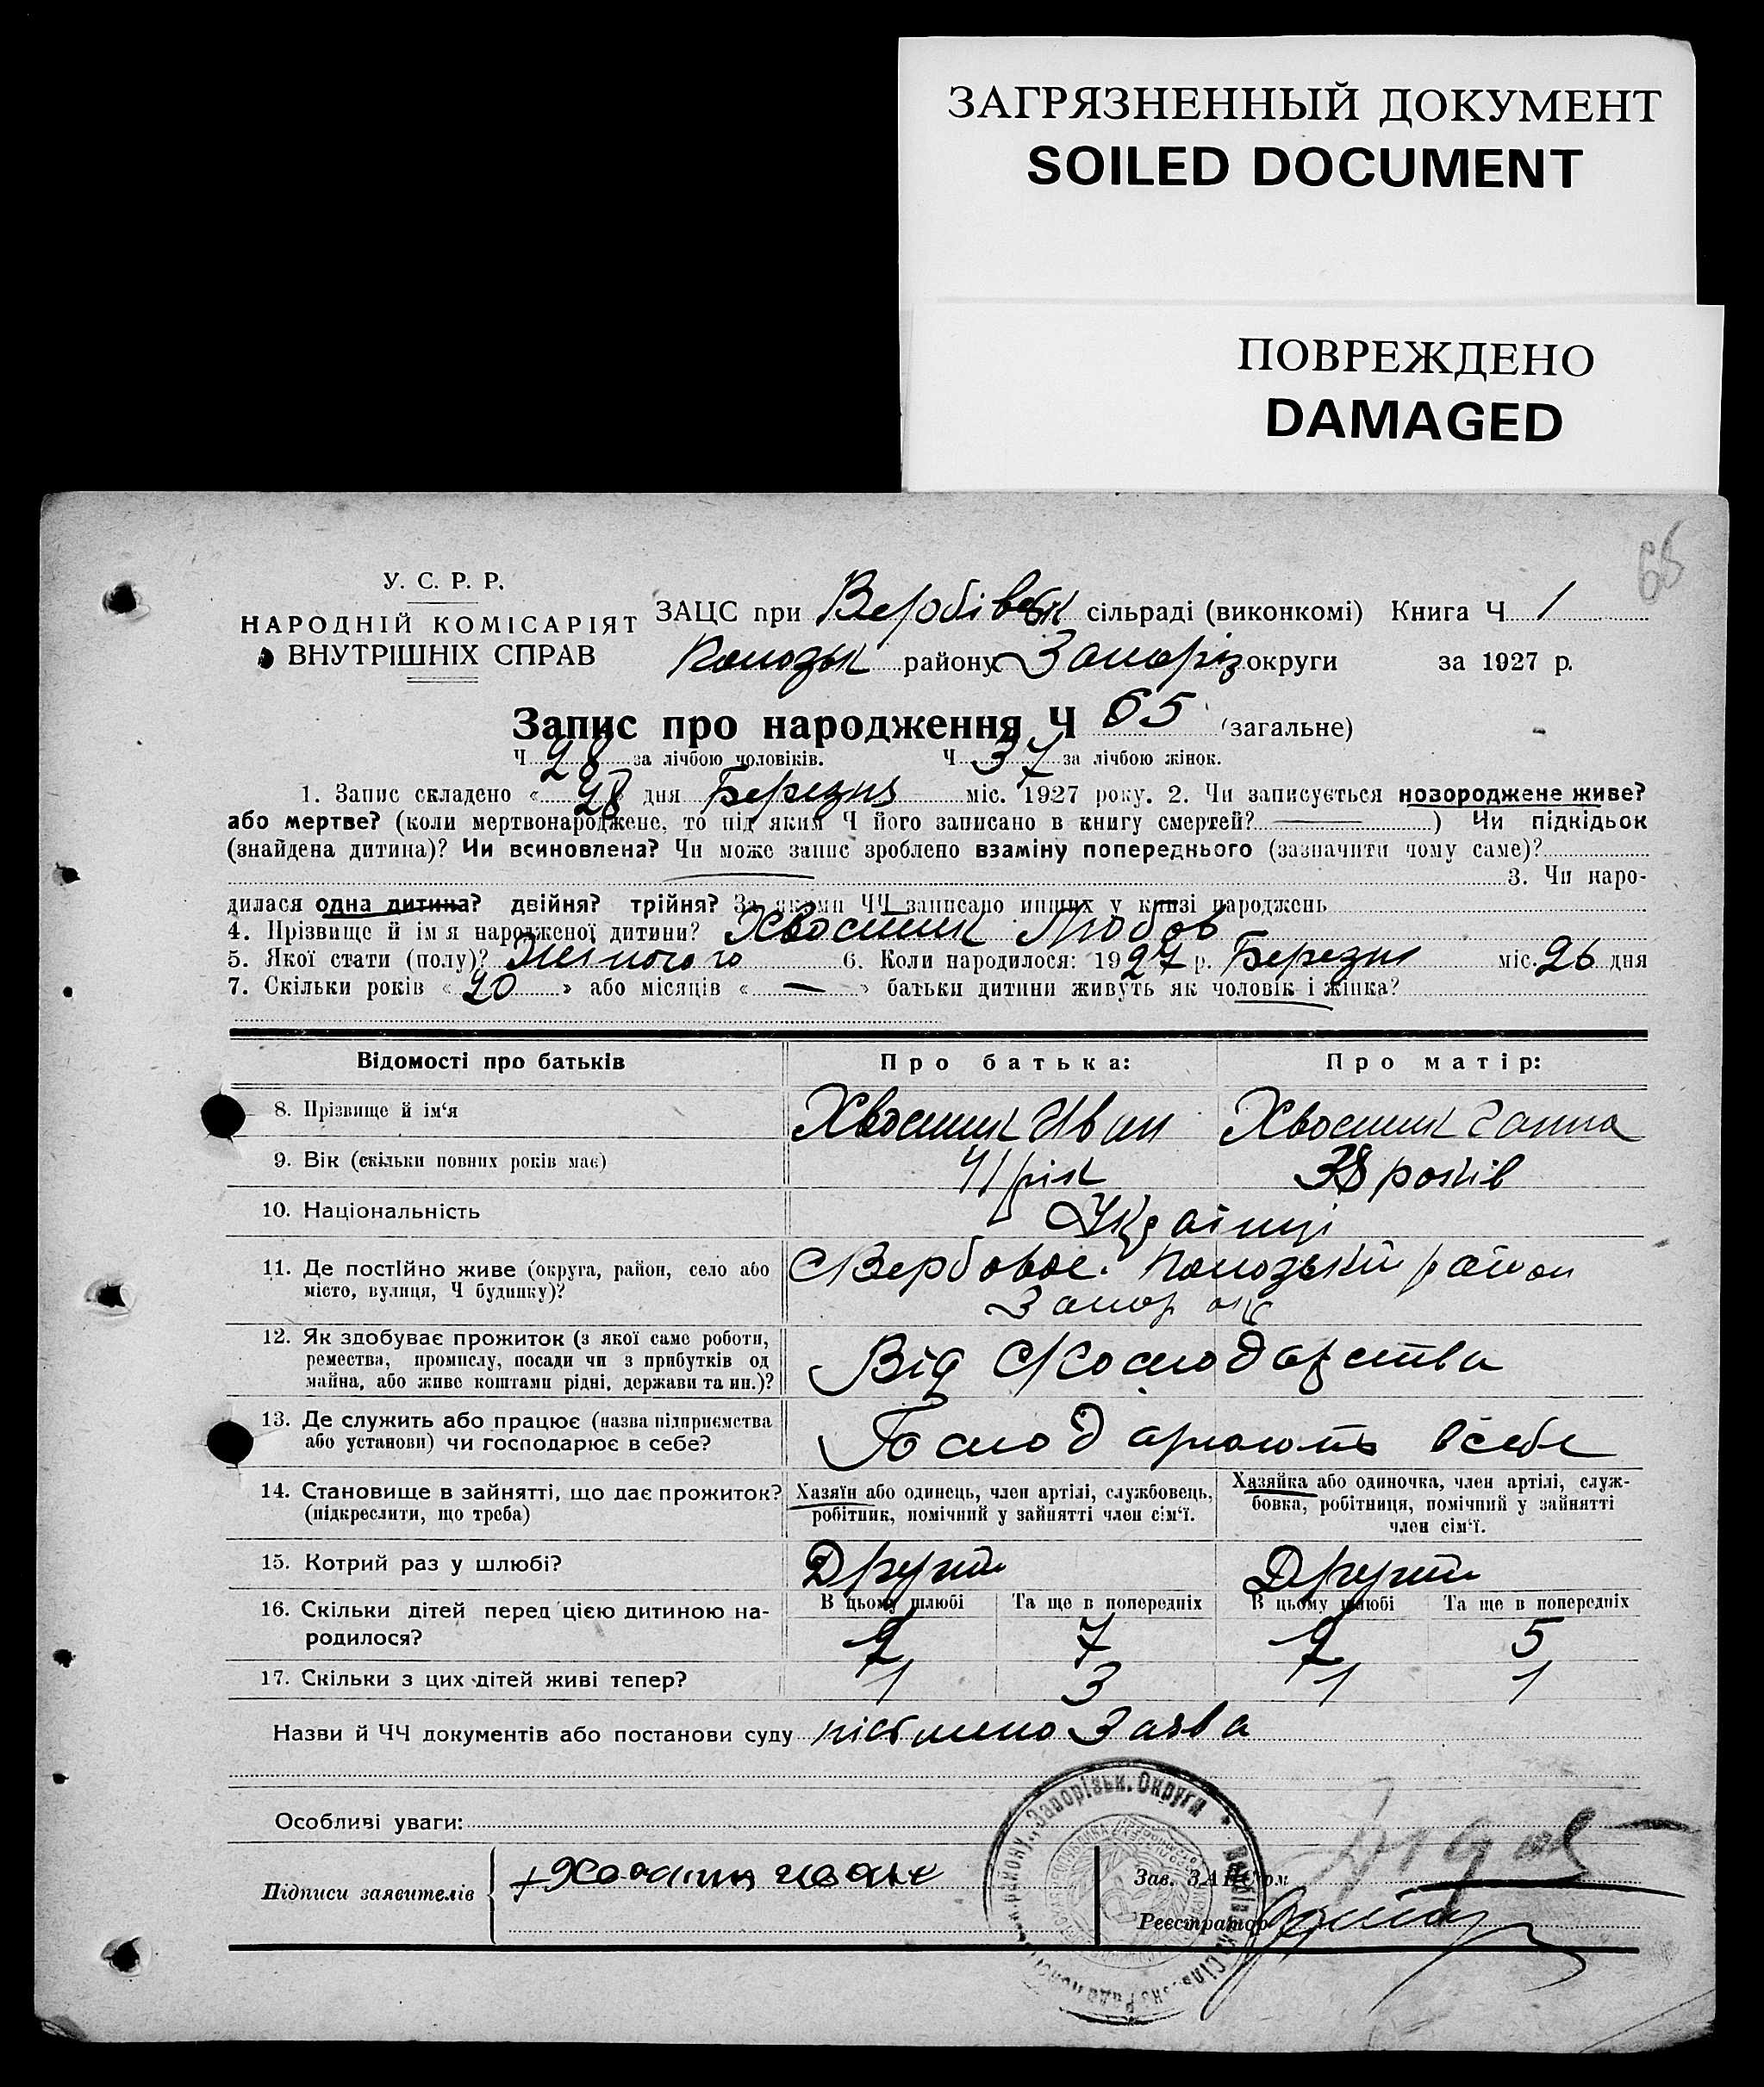 ЗАГРЯЗНЕННЫЙ ДОКУМЕНТ
SOILED DOCUMENT
ПОВРЕЖДЕНО
DAMAGED
68
У. С. Р. Р.
НАРОДНІЙ КОМІСАРІЯТ
ВНУТРІШНІХ СПРАВ
ЗАЦС при Вербівськ сільраді (виконкомі) Книга Ч 1
району Запоріз округи за 1927 р.
Запис про народження Ч 65 (загальне)
Ч 28 за лічбою чоловіків. Ч 37 за лічбою жінок.
1. Запис складено « 28 дня Березня міс. 1927 року. 2. Чи записується новороджене живе?
або мертве? (коли мертвонароджене, то під яким Ч його записано в книгу смертей? ) Чи підкідьок
(знайдена дитина)? Чи всиновлена? Чи може запис зроблено взаміну попереднього (зазначити чому саме)?
3. Чи наро-
дилася одна дитина? двійня? трійня? За якими ЧЧ записано инших у книзі народжень
4. Прізвище й імя народженої дитини? Хвостик Любов
5. Якої стати (полу)? Жіночого 6. Коли народилося: 1927 р. Березня міс. 26 дня
7. Скільки років « 20 » або місяців « — » батьки дитини живуть як чоловік і жінка?
Відомості про батьків Про батька: Про матір:
8. Прізвище й ім'я Хвостик Иван Хвостик Ганна
9. Вік (скільки повних років має) 41 рік 38 років
10. Національність Українці
11. Де постійно живе (округа, район, село або
місто, вулиця, Ч будинку)?
С Вербовое. район
12. Як здобуває прожиток (з якої саме роботи,
ремества, промислу, посади чи з прибутків од
майна, або живе коштами рідні, держави та ин.)?
Від Господарства
13. Де служить або працює (назва підприємства
або установи) чи господарює в себе?
Господарюють в себе
14. Становище в зайнятті, що дає прожиток?
(підкреслити, що треба)
Хазяїн або одинець, член артілі, службовець,
робітник, помічний у зайнятті член сім'ї.
Хазяйка або одиночка, член артілі, служ-
бовка, робітниця, помічний у зайнятті
член сім'ї.
15. Котрий раз у шлюбі? Другий Другий
В цьому шлюбі Та ще в попередніх В цьому шлюбі Та ще в попередніх
16. Скільки дітей перед цією дитиною на-
родилося?
2 7 2 5
17. Скільки з цих дітей живі тепер? 1 3 1 1
Назви й ЧЧ документів або постанови суду Заява
Особливі уваги:
Підписи заявителів
Зав. ЗАЦСом
Реєстратор
Запорізьк. Округи